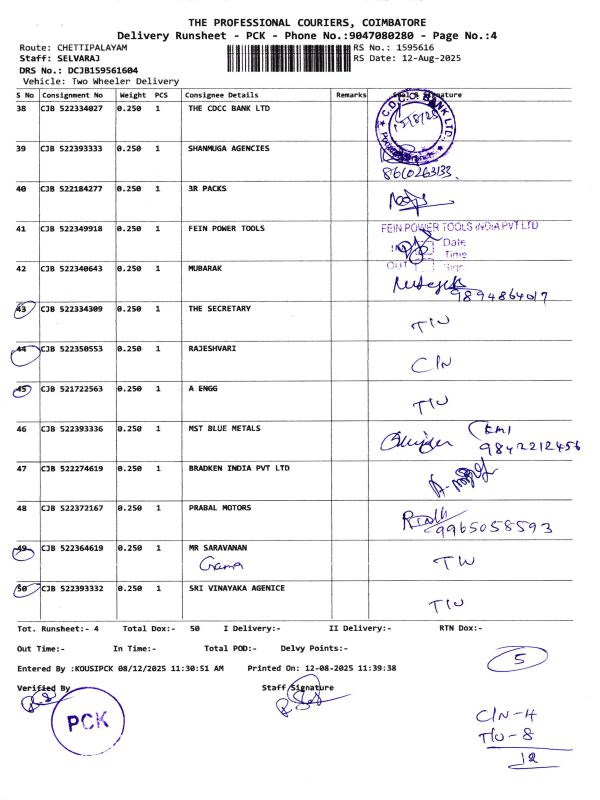 THE PROFESSIONAL COURIERS, COIMBATORE
Delivery Runsheet - PCK - Phone No.:9047080280 - Page No.:4
Route: CHETTIPALAYAM RS No.: 1595616
Staff: SELVARAJ RS Date: 12-Aug-2025
DRS No.: DCJB159561604
Vehicle: Two Wheeler Delivery
S No Consignment No Weight PCS Consignee Details Remarks Signature
38 CJB 522334027 0.250 1 THE CDCC BANK LTD
C.D.C.C. BANK LTD.,
39 CJB 522393333 0.250 1 SHANMUGA AGENCIES
8610263133
40 CJB 522184277 0.250 1 3R PACKS
41 CJB 522349918 0.250 1 FEIN POWER TOOLS
FEIN POWER TOOLS INDIA PVT LTD
Date
Time
OUT Sign
42 CJB 522340643 0.250 1 MUBARAK
9894864017
43 CJB 522334309 0.250 1 THE SECRETARY T/U
44 CJB 522350553 0.250 1 RAJESHVARI C/N
45 CJB 521722563 0.250 1 A ENGG T/U
46 CJB 522393336 0.250 1 MST BLUE METALS
9842212456
47 CJB 522274619 0.250 1 BRADKEN INDIA PVT LTD
48 CJB 522372167 0.250 1 PRABAL MOTORS
9965058593
49 CJB 522364619 0.250 1 MR SARAVANAN T/U
50 CJB 522393332 0.250 1 SRI VINAYAKA AGENICE T/U
Tot. Runsheet:- 4 Total Dox:- 50 I Delivery:- II Delivery:- RTN Dox:-
Out Time:- In Time:- Total POD:- Delvy Points:-
5
Entered By :KOUSIPCK 08/12/2025 11:30:51 AM Printed On: 12-08-2025 11:39:38
Verified By Staff Signature
PCK
C/N-4
T/U-8
12